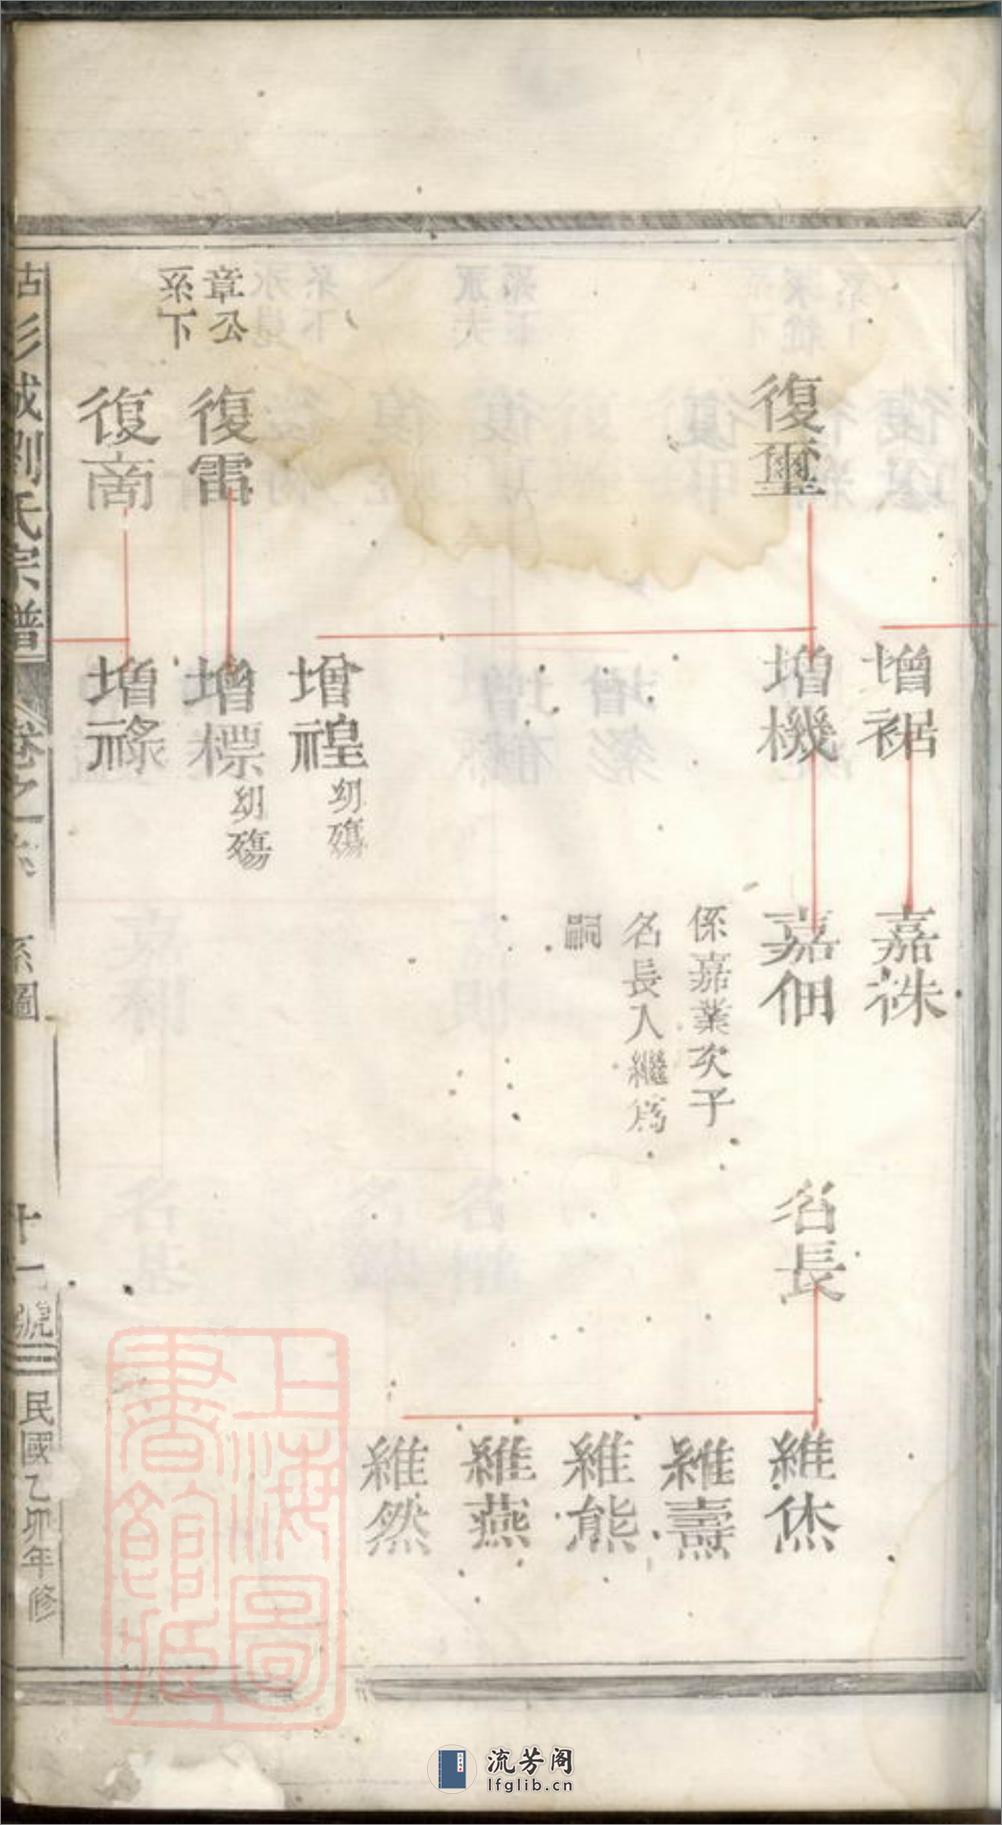 復璽
章公
系下
復雷
復商
增裾
增機
增禋
幼殤
增標
幼殤
增祿
嘉祩
嘉佃
係嘉業次子
名長入繼爲
嗣
名長
維烋
維燾
維熊
維燕
維然
古彭城劉氏宗譜
卷之
系圖
十一號
民國乙卯年修
上海圖書館藏
流芳阁
lfglib.cn